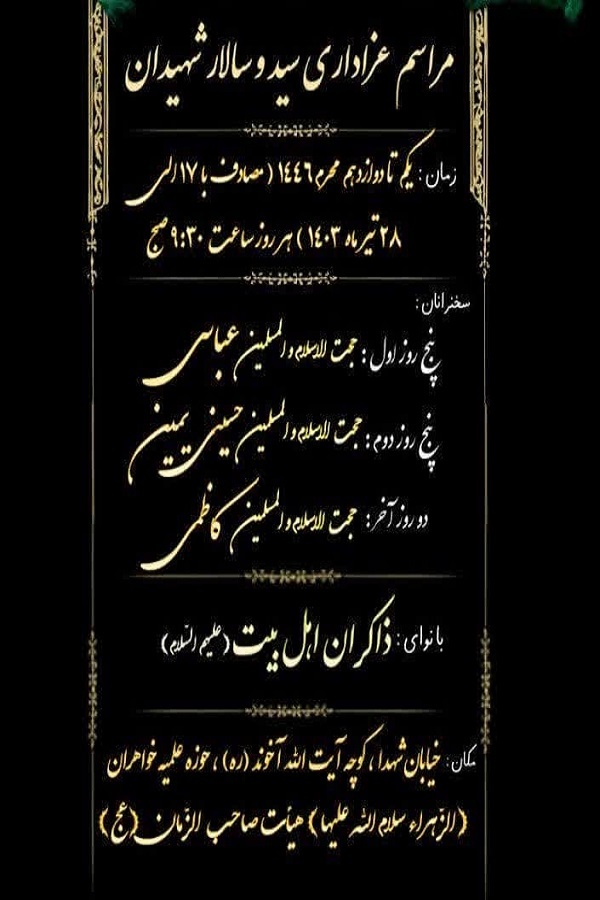 مراسم عزاداری سید و سالار شهیدان
زمان: یکم تا دوازدهم محرم ۱٤٤٦ (مصادف با ۱۷ الی
۲۸ تیر ماه ۱٤۰۳) هر روز ساعت ۹:۳۰ صبح
سخنرانان:
پنج روز اول: حجت الاسلام و المسلمین عباسی
پنج روز دوم: حجت الاسلام و المسلمین حسینی یمین
دو روز آخر: حجت الاسلام و المسلمین کاظمی
با نوای: ذاکران اهل بیت (علیهم السّلام)
مکان: خیابان شهدا، کوچه آیت الله آخوند (ره)، حوزه علمیه خواهران
(الزّهراء سلام الله علیها) هیأت صاحب الزّمان (عج)